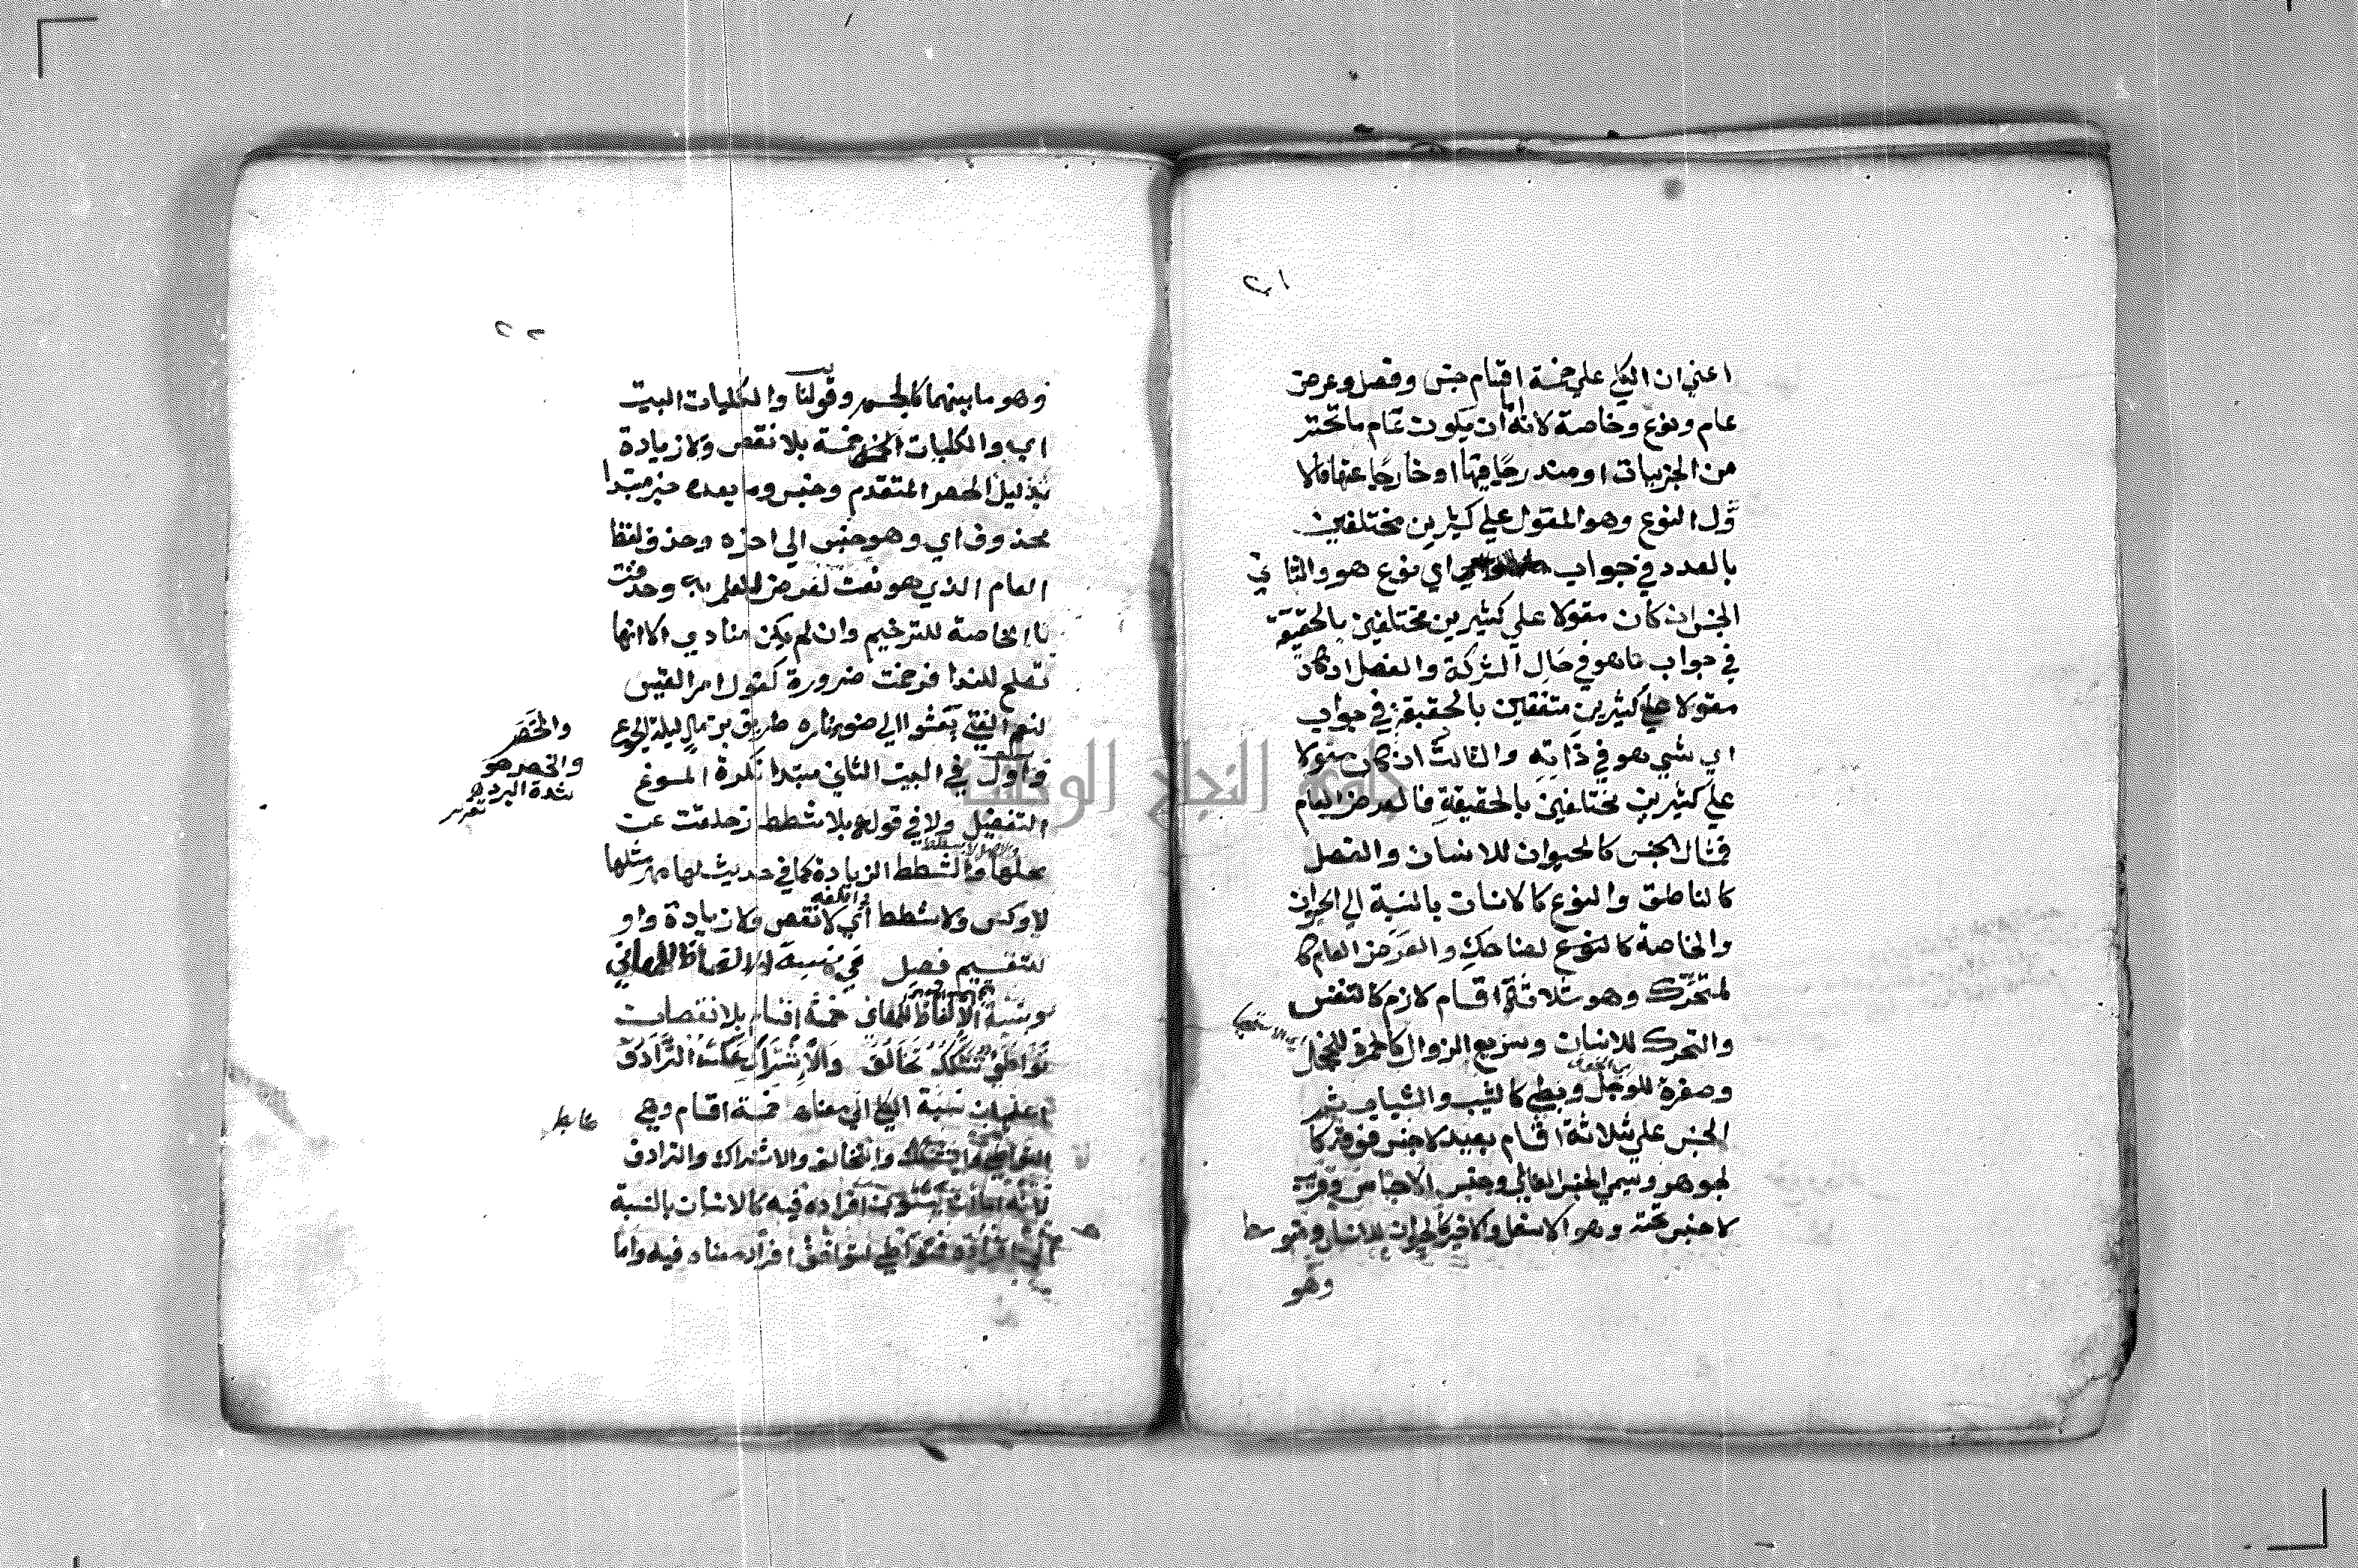 ٢١
اعني ان الكلي علي خمسة اقسام جنس وفصل وعرض
عام ونوع وخاصة لانه اما ان يكون تمام ما تحته
من الجزييات او مندرجا فيها او خارجا عنها فالا
ول النوع وهو المقول علي كثيرين مختلفين
بالعدد في جواب اي نوع هو والثاني
الجنس ان كان مقولا علي كثيرين مختلفين بالحقيقة
في جواب ما هو في حال الشركة والفصل ان كان
مقولا علي كثيرين متفقين بالحقيقة في جواب
اي شي هو في ذاته والثالث ان كان مقولا
علي كثيرين مختلفين بالحقيقة فالعرض العام
فمثال الجنس كالحيوان للانسان والفصل
كالناطق والنوع كالانسان بالنسبة الي الحيوان
والخاصة كالنوع لضاحك والعرض العام كا
لمتحرك وهو ثلاثة اقسام لازم كالتنفس
والتحرك للانسان وسريع الزوال كالحمرة للخجل
وصفرة للوجل وبطي كالشيب والشباب ثم
الجنس علي ثلاثة اقسام بعيد لا جنس فوقه كا
لجوهر وسمي الجنس العالي وجنس الاجناس وقريب
لا جنس تحته وهو الاسفل والاخير كالحيوان للانسان ومتوسط
وهو
٢٢
وهو ما بينهما كالجسم وقولنا والكليات البيت
اي والكليات الخمس خمسة بلا نقص ولا زيادة
بدليل الحصر المتقدم وجنس وما بعده خبر مبتدا
محذوف اي وهو جنس الي اخره وحذف لفظ
العام الذي هو نعت لعرض للعلم به وحذفت
تا الخاصة للترخيم وان لم يكن منادي الا انها
تصلح للندا فرخمت ضرورة كقول امر القيس
لنعم الفتي تعشوا الي ضوء ناره طريق بن مال ليلة الجوع
والخصر
والخصر هو
شدة البرد
واول في البيت الثاني مبتدا نكرة المسوغ
التفضيل ولا في قوله بلا شطط زحلقت عن
محلها والشطط الزيادة كما في حديث لها مهر مثلها
لا وكس ولا شطط اي لا نقص ولا زيادة واو
للتقسيم فصل في نسبة الالفاظ للمعاني
ونسبة الالفاظ للمعاني خمسة اقسام بلا نقصان
تواطئ تشكك تخالف والاشتراك عكسه الترادف
اعني ان نسبة الكلي الي معناه خمسة اقسام وهي
التواطي والتشكك والتخالف والاشتراك والترادف
لانه اما ان يستوي افراده فيه كالانسان بالنسبة
الي افراده فمتواطي لتوافق افراد معناه فيه واما
جامعة النجاح الوطنية